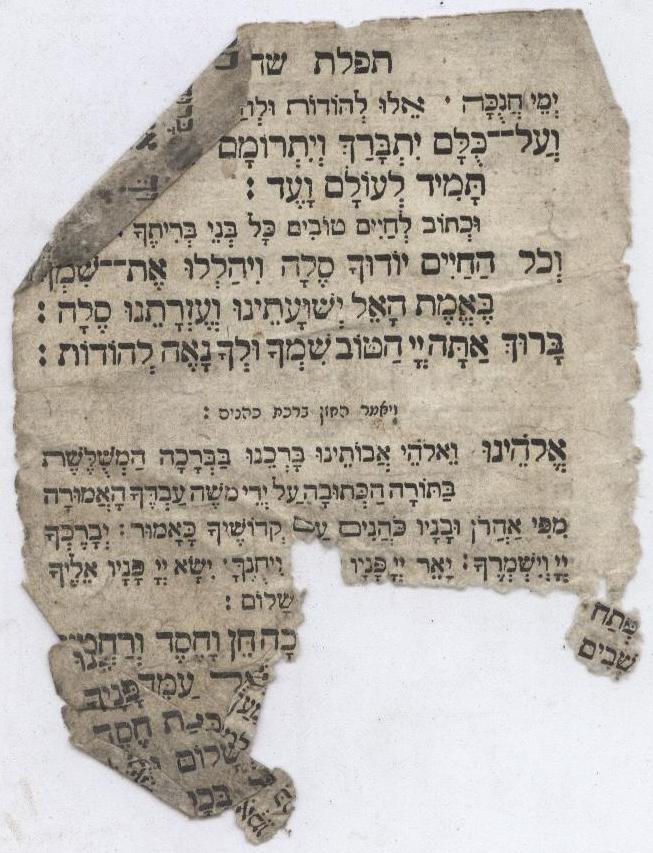 תפלת
יְמֵי חֲנֻכָּה · אֵלוּ לְהוֹדוֹת
וְעַל־־כֻּלָּם יִתְבָּרַךְ וְיִתְרוֹמָם
תָּמִיד לְעוֹלָם וָעֶד :
וּכְתוֹב לְחַיִּים טוֹבִים כָּל בְּנֵי בְרִיתֶךָ ·
וְכֹל הַחַיִּים יוֹדוּךָ סֶּלָה וִיהַלְלוּ אֶת־־שִׁמְךָ
בֶּאֱמֶת הָאֵל יְשׁוּעָתֵינוּ וְעֶזְרָתֵנוּ סֶלָה :
בָּרוּךְ אַתָּה יְיָ הַטּוֹב שִׁמְךָ וּלְךָ נָאֶה לְהוֹדוֹת :
ויאמר החזן ברכת כהנים :
אֱלֹהֵינוּ וֵאלֹהֵי אֲבוֹתֵינוּ בָּרְכֵנוּ בַּבְּרָכָה הַמְשֻׁלֶּשֶׁת
בַּתּוֹרָה הַכְּתוּבָה עַל יְדֵי מֹשֶׁה עַבְדֶּךָ הָאֲמוּרָה
מִפִּי אַהֲרֹן וּבָנָיו כֹּהֲנִים עַם קְדוֹשֶׁיךָ כָּאָמוּר : יְבָרֶכְךָ
יְיָ וְיִשְׁמְרֶךָ : יָאֵר יְיָ פָּנָיו וִיחֻנֶּךָּ · יִשָּׂא יְיָ פָּנָיו אֵלֶיךָ
שָׁלוֹם :
חֵן וָחֶסֶד
עַמְּךָ פָּנֶיךָ
חֶסֶד
שָׁלוֹם